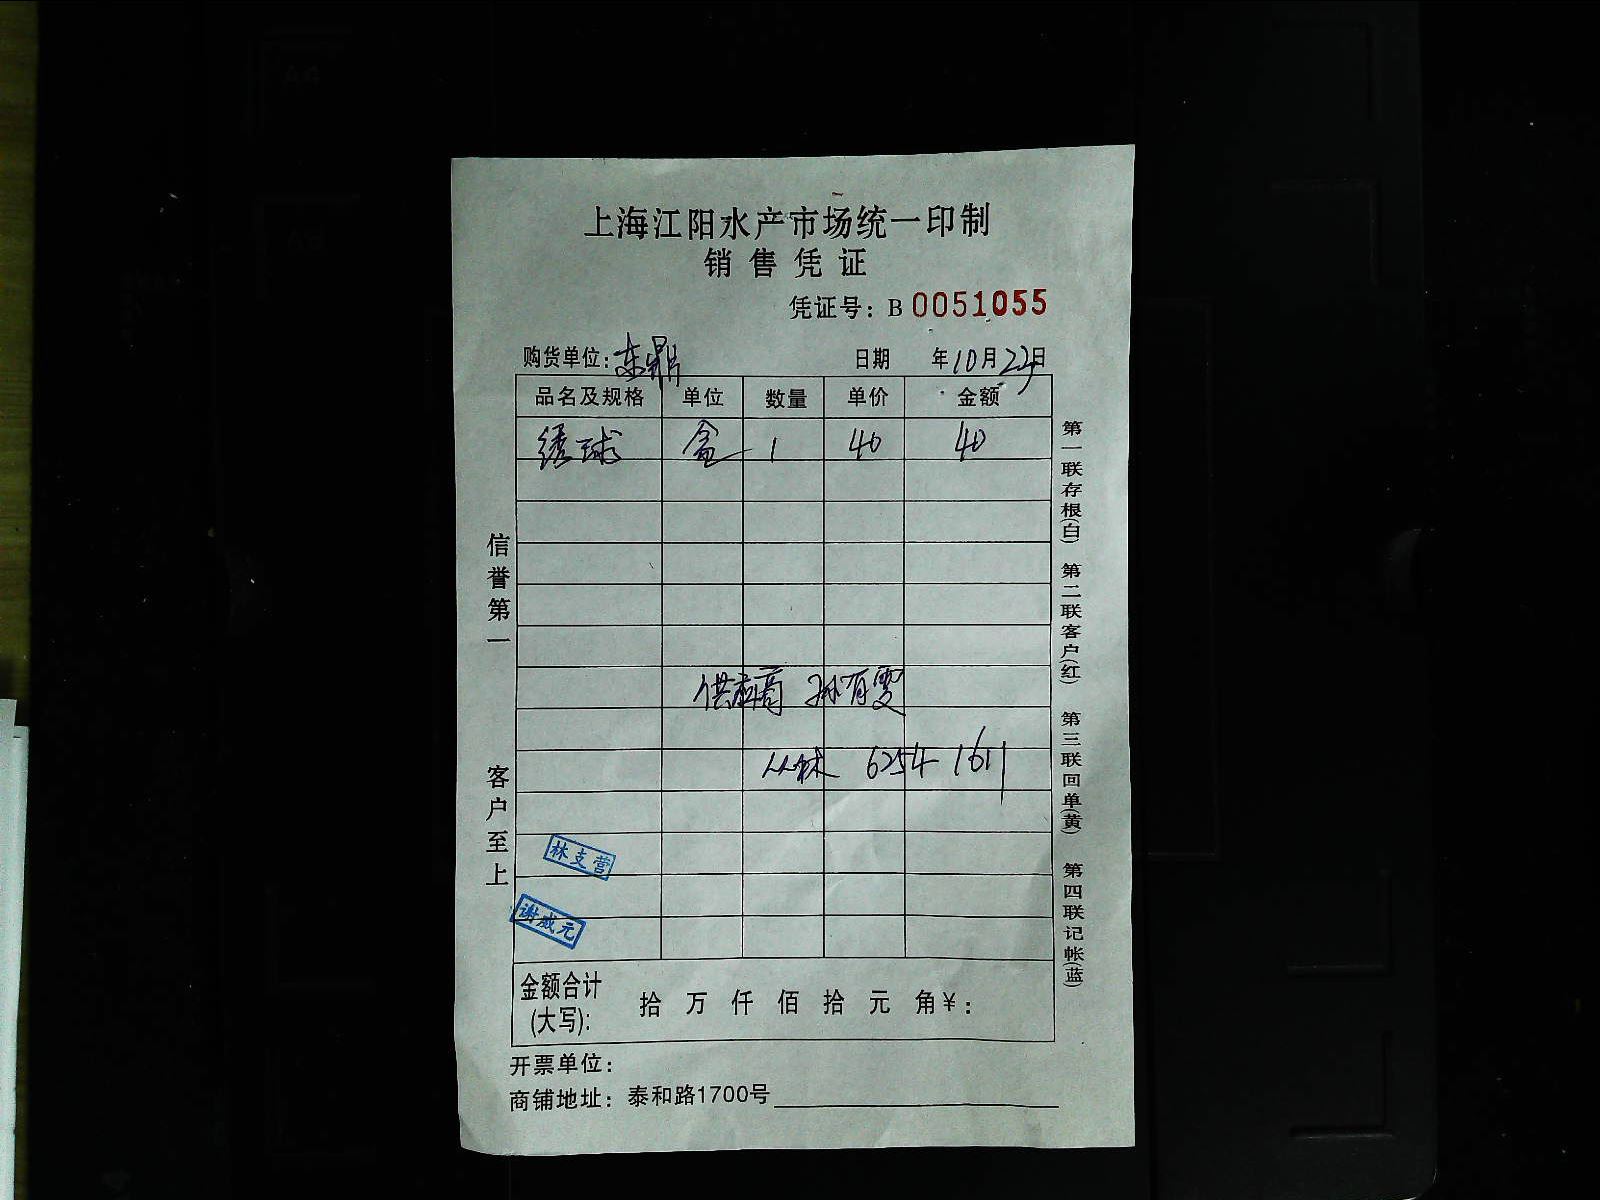 上海江阳水产市场统一印制
销售凭证
凭证号：B 0051055
购货单位：东鼎 日期 年10月22日
品名及规格 单位 数量 单价 金额
绣球 盒 1 40 40
供应商 孙有雯
丛林 6254 1611
林支营
谢威元
金额合计(大写)： 拾 万 仟 佰 拾 元 角 ¥：
开票单位：
商铺地址：泰和路1700号
信誉第一 客户至上
第一联存根(白) 第二联客户(红) 第三联回单(黄) 第四联记帐(蓝)